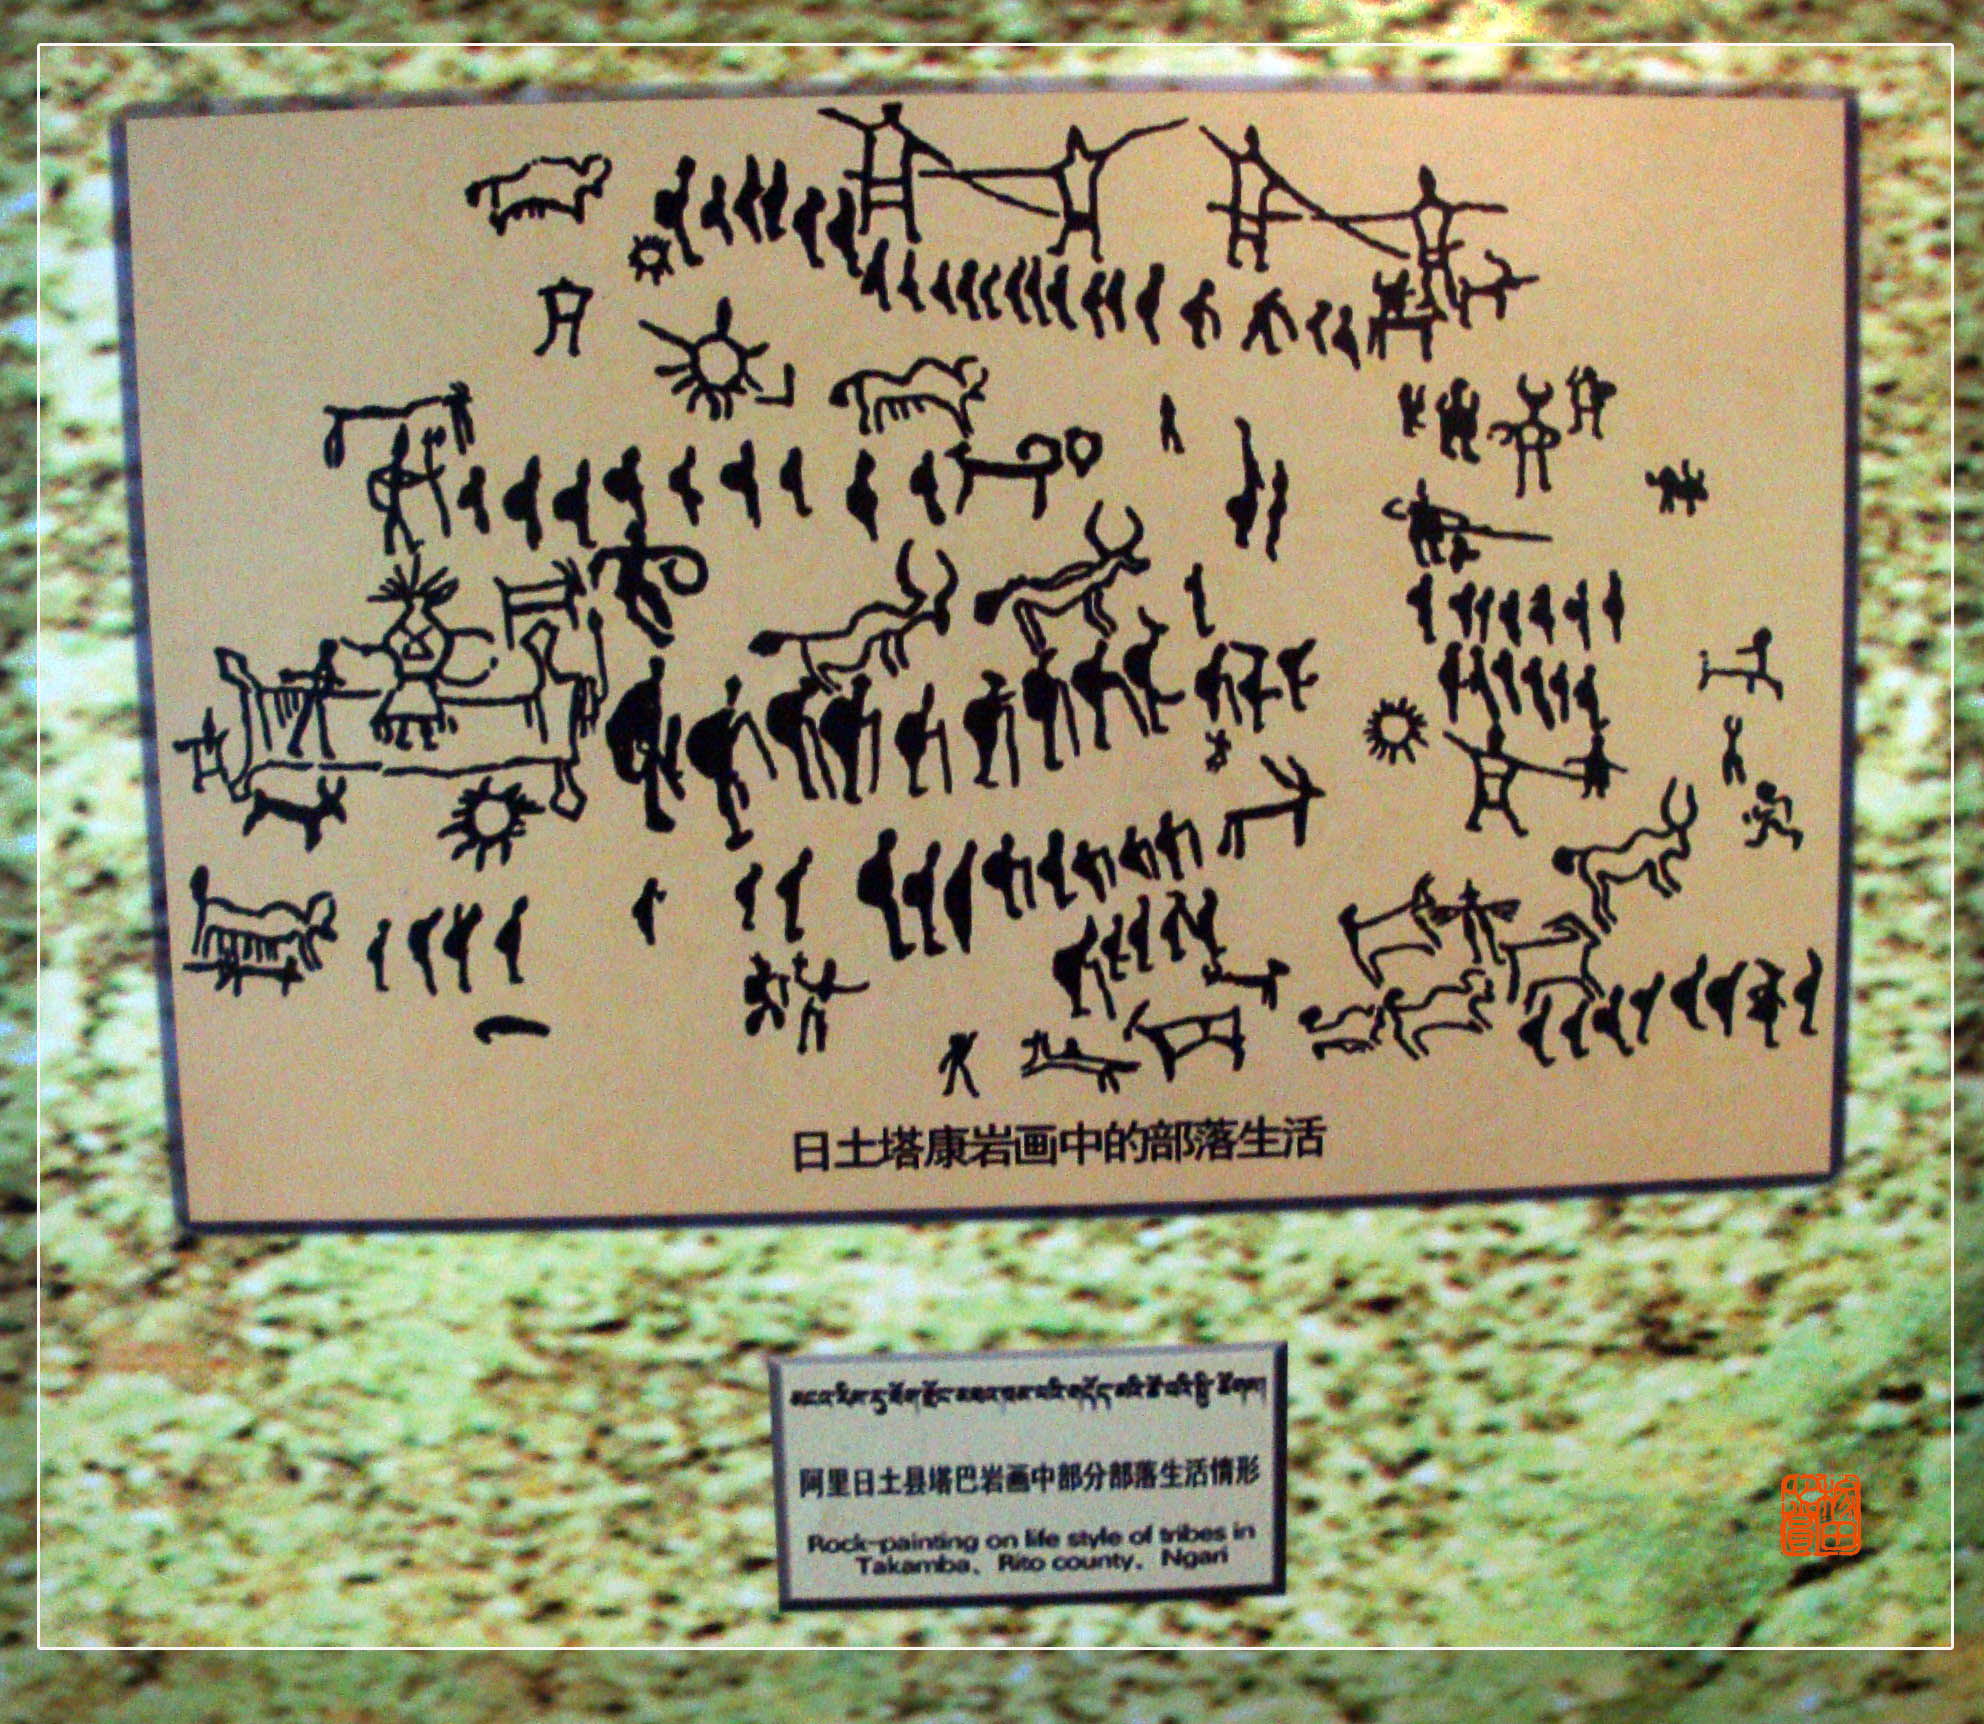 日土塔康岩画中的部落生活
阿里日土县塔巴岩画中部分部落生活情形
Rock-painting on life style of tribes in
Takamba、Rito county、Ngari